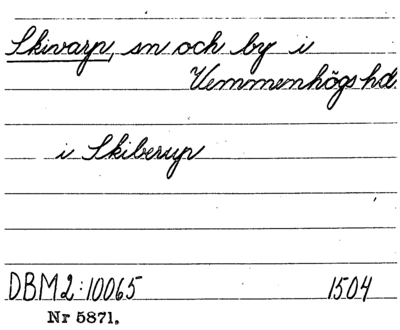 Skivarp, sn och by i
Vemmenhögs hd.
i Skiberup
DBM2:10065 1504
Nr 5871.